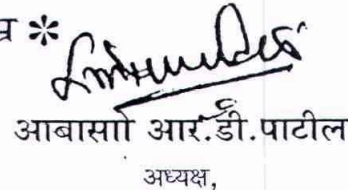 त्र *
आबासाो आर.डी.पाटील
अध्यक्ष,